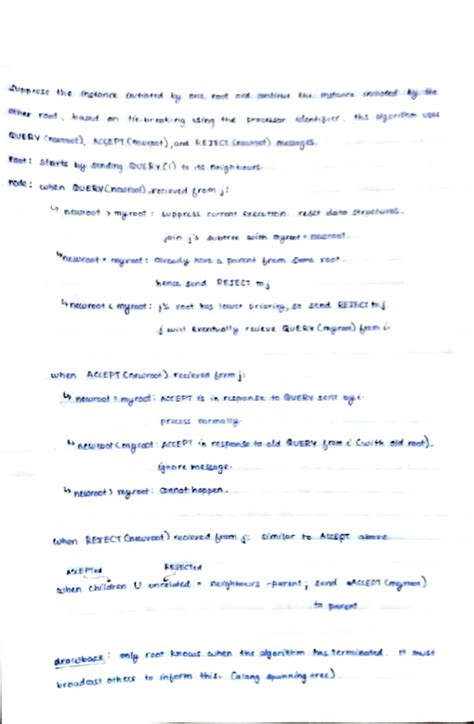 Suppress the instance initiated by one root and continue the instance initiated by the
other root, based on tie-breaking using the processor identifier. this algorithm uses
QUERY (newroot), ACCEPT (newroot), and REJECT (newroot) messages.
Root: starts by sending QUERY(i) to its neighbours.
node: when QUERY(newroot) recieved from j:
↳ newroot > myroot: suppress current execution. reset data structures.
join j's subtree with myroot = newroot.
↳ newroot = myroot: already have a parent from same root.
hence send REJECT to j
↳ newroot < myroot: j's root has lower priority, so send REJECT to j
j will eventually recieve QUERY (myroot) from i.
when ACCEPT (newroot) recieved from j:
↳ newroot = myroot: ACCEPT is in response to QUERY sent by i
process normally.
↳ newroot < myroot: ACCEPT in response to old QUERY from i (with old root).
ignore message.
↳ newroot > myroot: cannot happen.
when REJECT (newroot) recieved from j: similar to ACCEPT above
ACCEPTed REJECTed
when children U unrelated = neighbours - parent, send ACCEPT (myroot)
to parent
drawback: only root knows when the algorithm has terminated. it must
broadcast others to inform this. (along spanning tree).